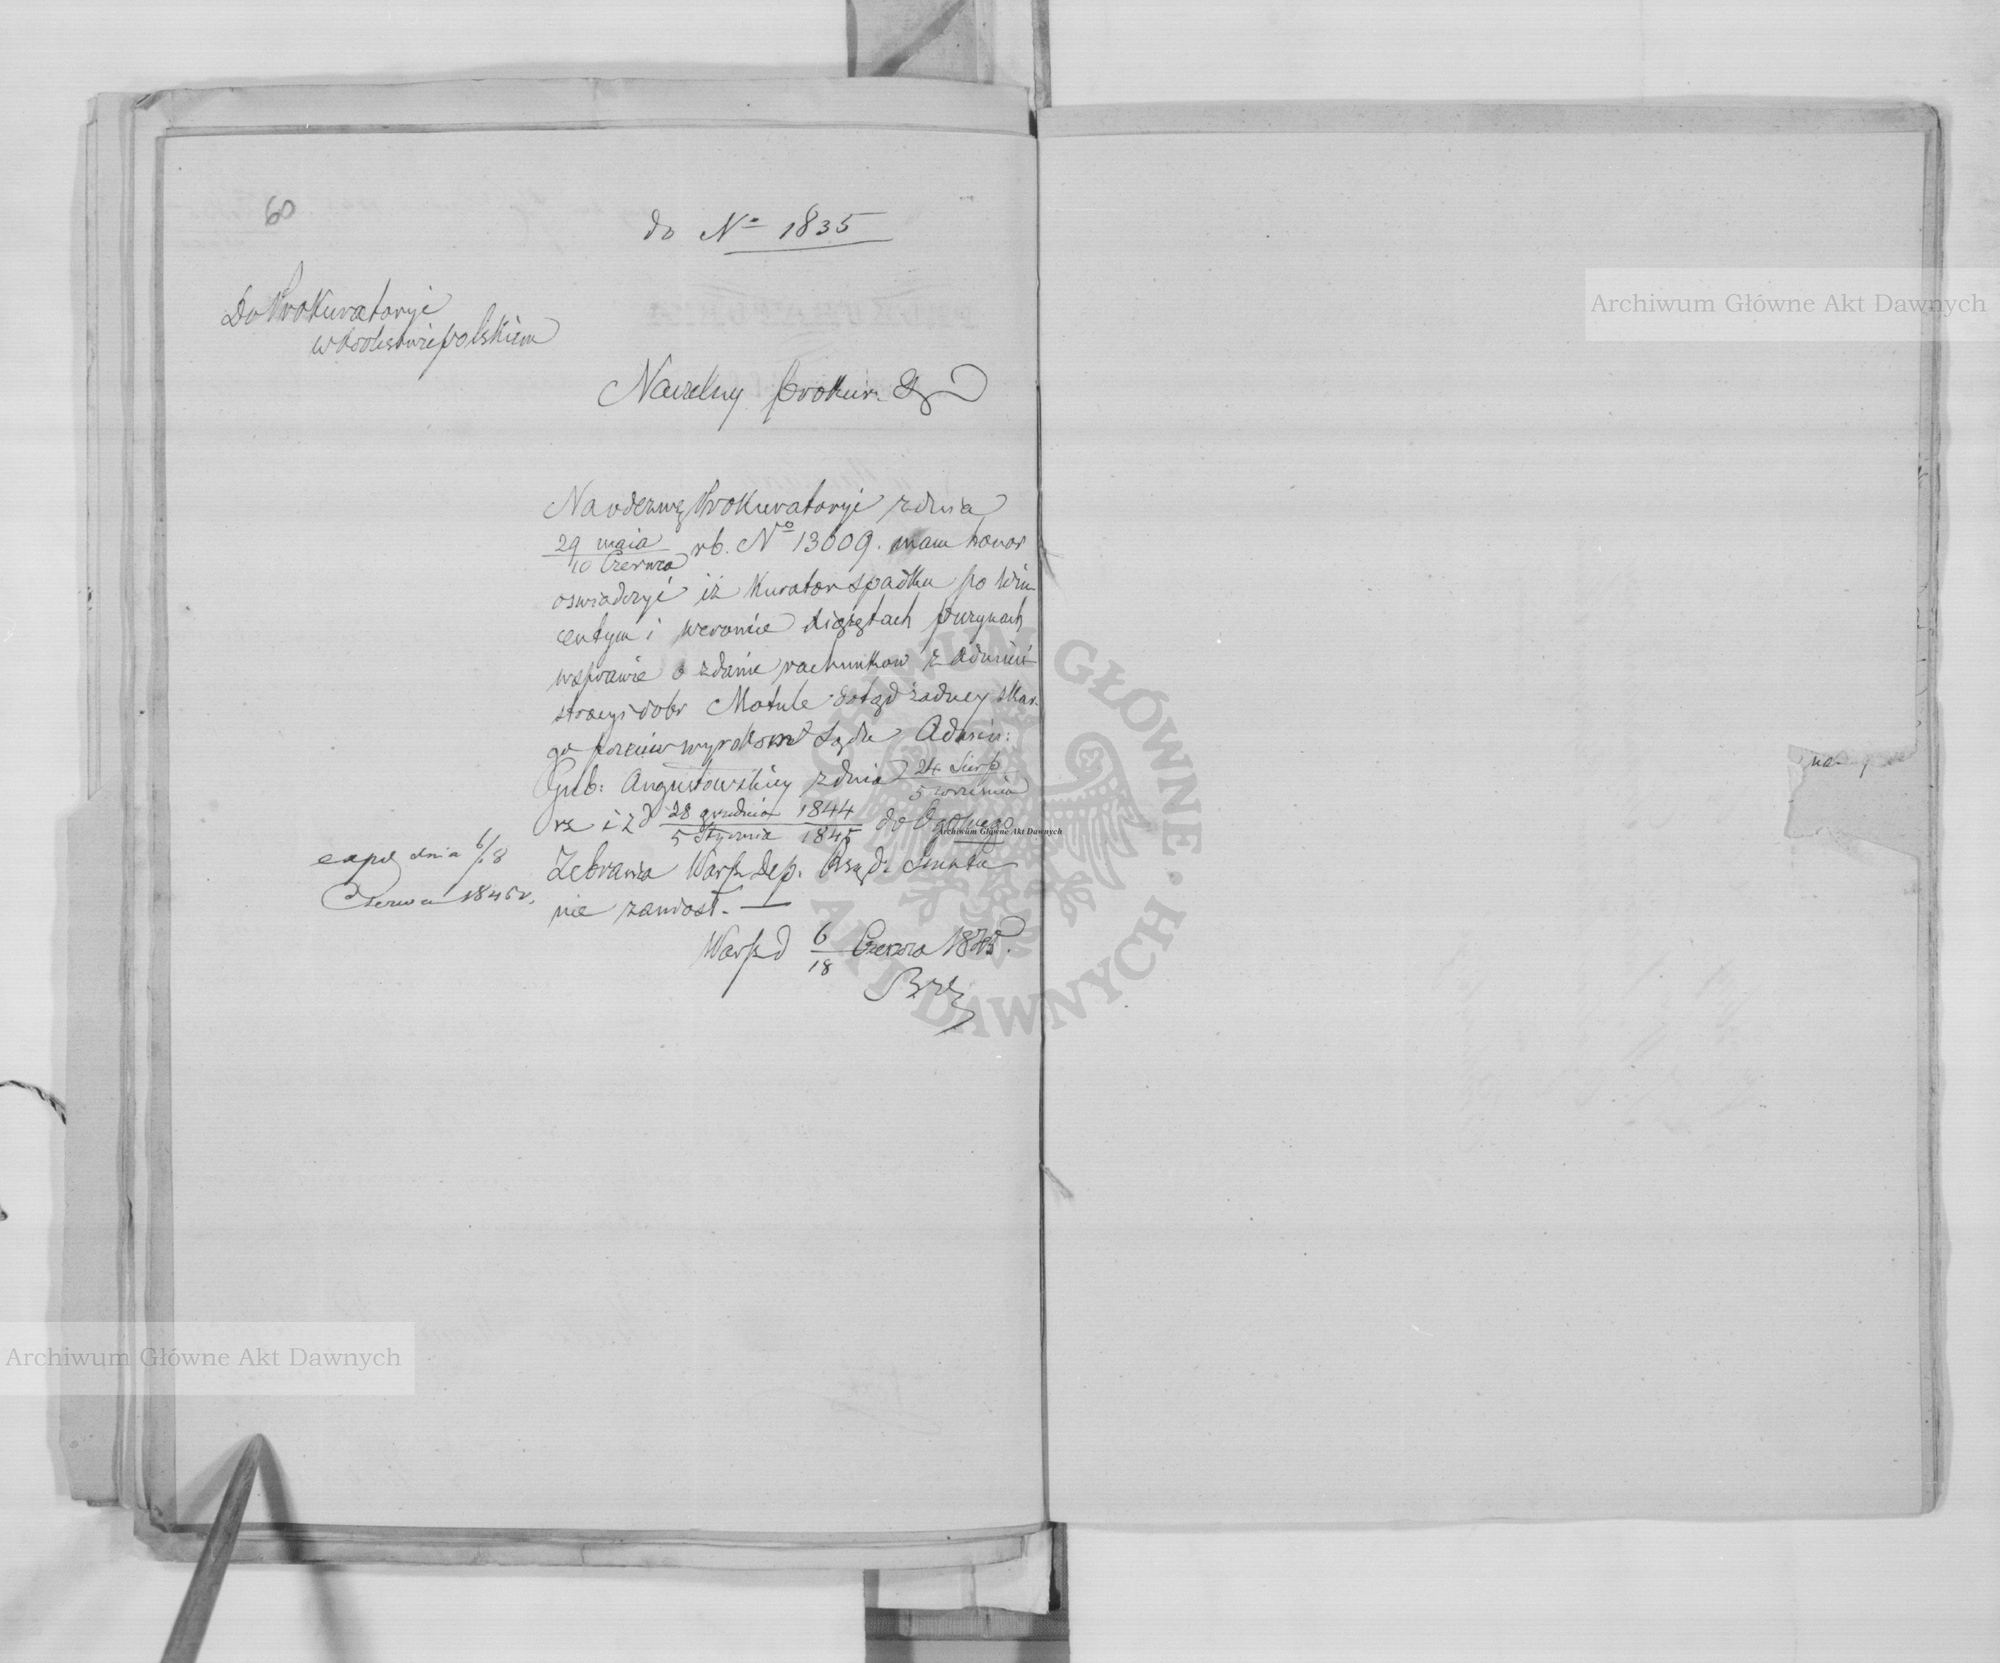 60
do No 1835
Do Prokuratoryi
w Królestwie polskiem
Naczelny Prokur.
Na odezwę Prokuratoryi z dnia
29 maia
10 Czerwca rb. No 13009. mam honor
oswiadczyć iż Kurator spadku po Win
centym i Weronice Xiążętach Puzynach
w sprawie o zdanie rachunkow z Admini
stracyi dobr Motule dotąd żadney skar
gi przeciw wyrokom Sądu Admin:
Gub: Augustowskiey z dnia 24 Sierp
5 września
rz i z d 28 grudnia 1844
5 Stycznia 1845 do Ogolnego
Zebrania Warsz Dep. Rządz. Senatu
nie zaniosł. —
exped dnia 6/18
Czerwca 1845 r.
Warsz d 6
18 Czerwca 1845.
Archiwum Główne Akt Dawnych
Archiwum Główne Akt Dawnych
Archiwum Główne Akt Dawnych
ARCHIWUM GŁÓWNE · AKT DAWNYCH ·